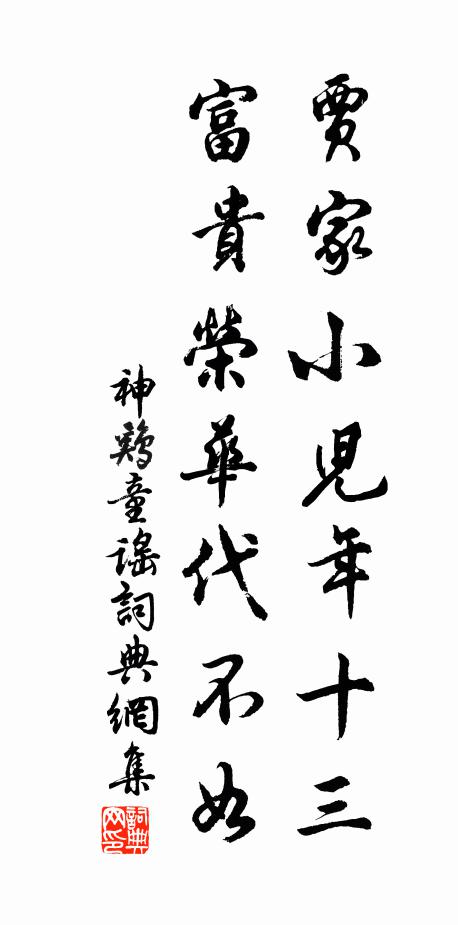 賈家小児年十三
富貴榮華代不如
神鷄童謠詞典網集
詞典网印